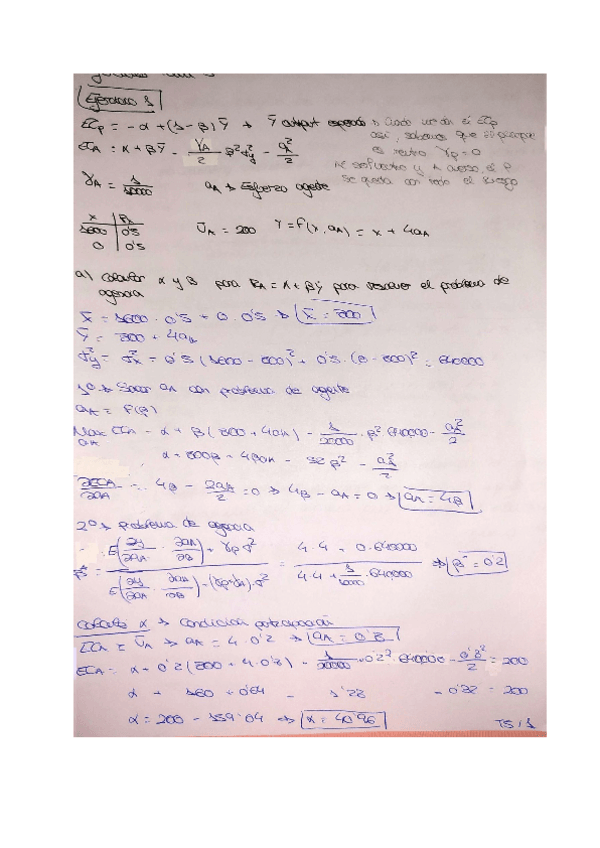 Ejercicio 1
ECp = -α + (1-β) ȳ → ȳ output esperado → Cuando nos dan el ECp
así, sabemos que el principal
ECA = α + βȳ - γA/2 β²σ²y - a²A/2
es neutro γp = 0
γA = 1/10000   aA → Esfuerzo agente
se queda con todo el riesgo
x | PA
1600 | 0'5
0 | 0'5
ŪA = 200   Y = f(x, aA) = x + 4aA
a) Calcular α y β para RA = α + βȳ para resolver el problema de
agencia
x̄ = 1600 · 0'5 + 0 · 0'5 → x̄ = 800
ȳ = 800 + 4aA
σ²y = σ²x = 0'5 (1600 - 800)² + 0'5 · (0 - 800)² = 640000
1º → Sacar aA con problema de agente
aA = f(β)
Max ECA = α + β(800 + 4aA) - 1/20000 · β² 640000 - a²A/2
aA
α + 800β + 4βaA - 32β² - a²A/2
∂ECA/∂aA = 4β - 2aA/2 = 0 → 4β - aA = 0 → aA = 4β
2º → problema de agencia
β* = E(∂y/∂aA · ∂aA/∂β) + γp σ² / E(∂y/∂aA · ∂aA/∂β) + (γp+γA) · σ² = 4·4 + 0·640000 / 4·4 + 1/10000 · 640000 → β* = 0'2
Calcular α → Condición participación
ECA = ŪA → aA = 4·0'2 → aA = 0'8
ECA = α + 0'2 (800 + 4·0'8) - 1/20000 · 0'2² · 640000 - 0'8²/2 = 200
α + 160 + 0'64 - 1'28 - 0'32 = 200
α = 200 - 159'04 → α = 40'96
T5/1